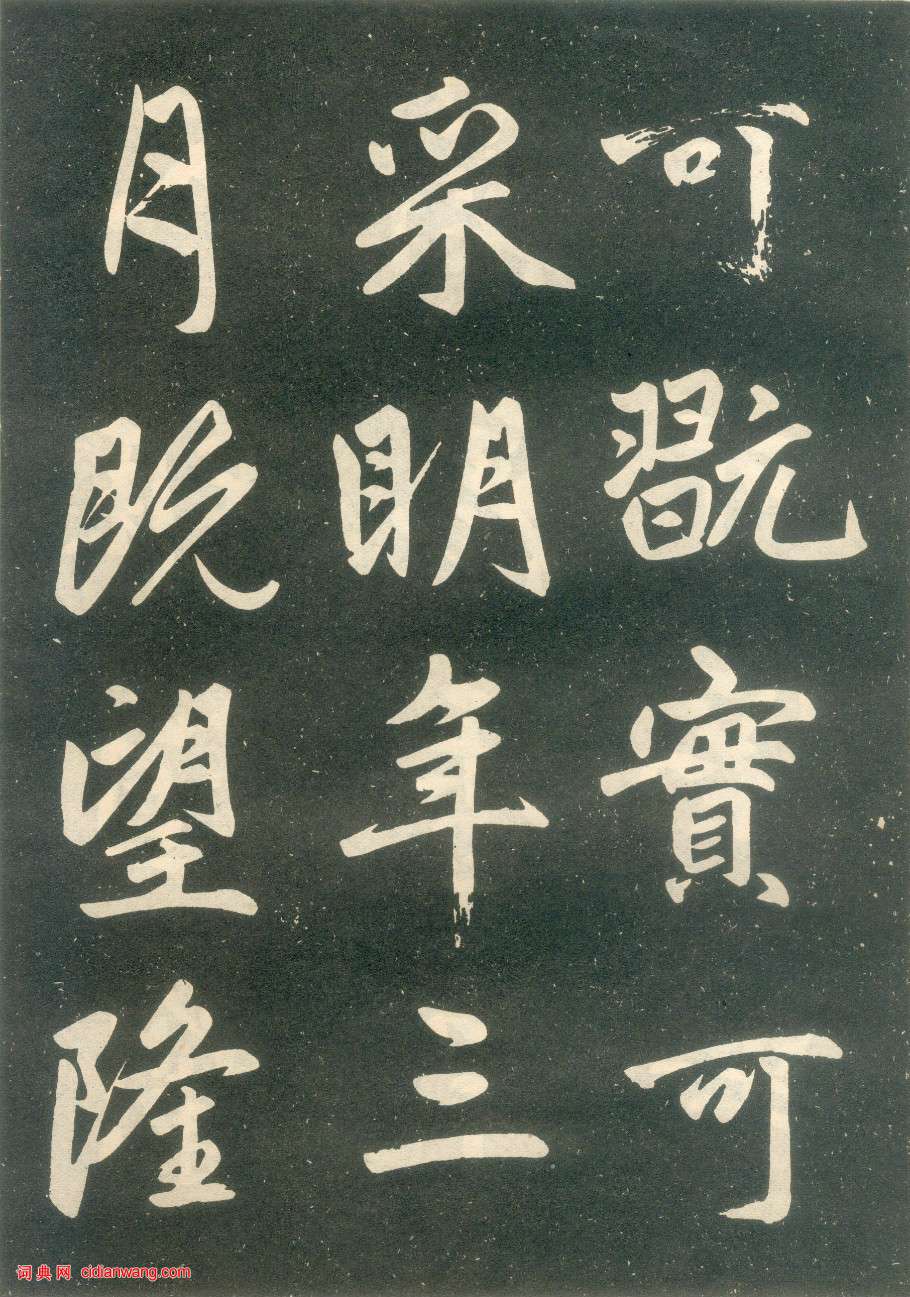 可翫實可
采明年三
月既望隆
词典网 cidianwang.com